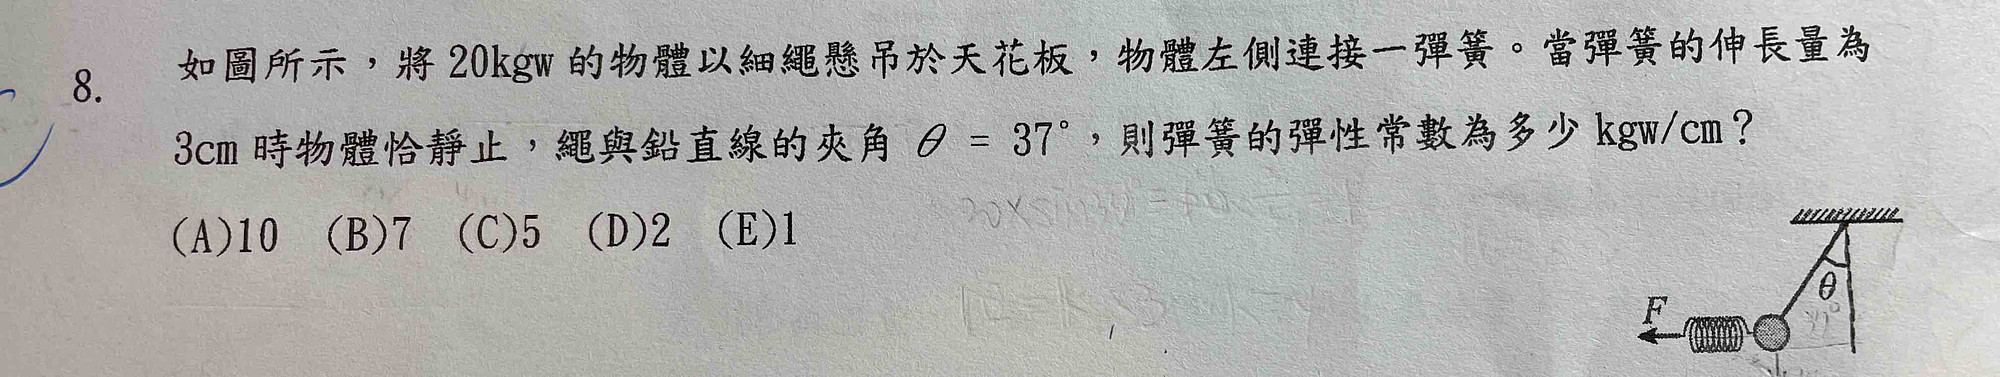 8. 如圖所示，將 20kgw 的物體以細繩懸吊於天花板，物體左側連接一彈簧。當彈簧的伸長量為
3cm 時物體恰靜止，繩與鉛直線的夾角 θ = 37°，則彈簧的彈性常數為多少 kgw/cm？
(A)10 (B)7 (C)5 (D)2 (E)1
θ
F
37°